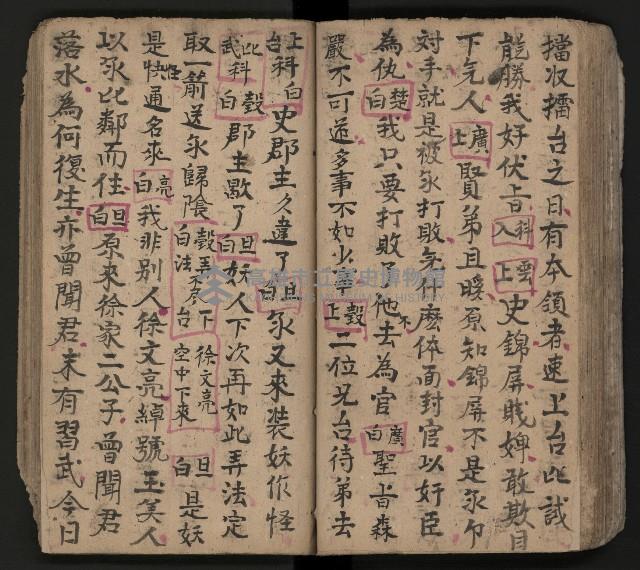 擋収擂台之日有本領者速上台比試
能勝我好伏旨入科 雲上 史錦屏賤婢敢欺目
下乞人 廣上 賢弟且暖原知錦屏不是永个
対手就是被永打敗有何麽体面封官以好臣
為仇 楚白 我只要打敗了他不去為官 廣白 聖旨森
嚴不可逆多事不如少事 上穀 二位兄台待弟去
上科白 台史郡主久違了 旦白 永又来装妖作怪
比科 武 穀白 郡主歇了 旦白 妖人下次再如此弄法定
取一箭送永歸陰 穀弄不居下 白法台 徐文亮空中下来 旦白 是妖
是怪快通名來 亮白 我非別人徐文亮綽號玉美人
以永比鄰而住 旦白 原来徐家二公子曾聞君
落水為何復生亦曾聞君未有習武今日
高雄市立歷史博物館
KAOHSIUNG MUSEUM OF HISTORY